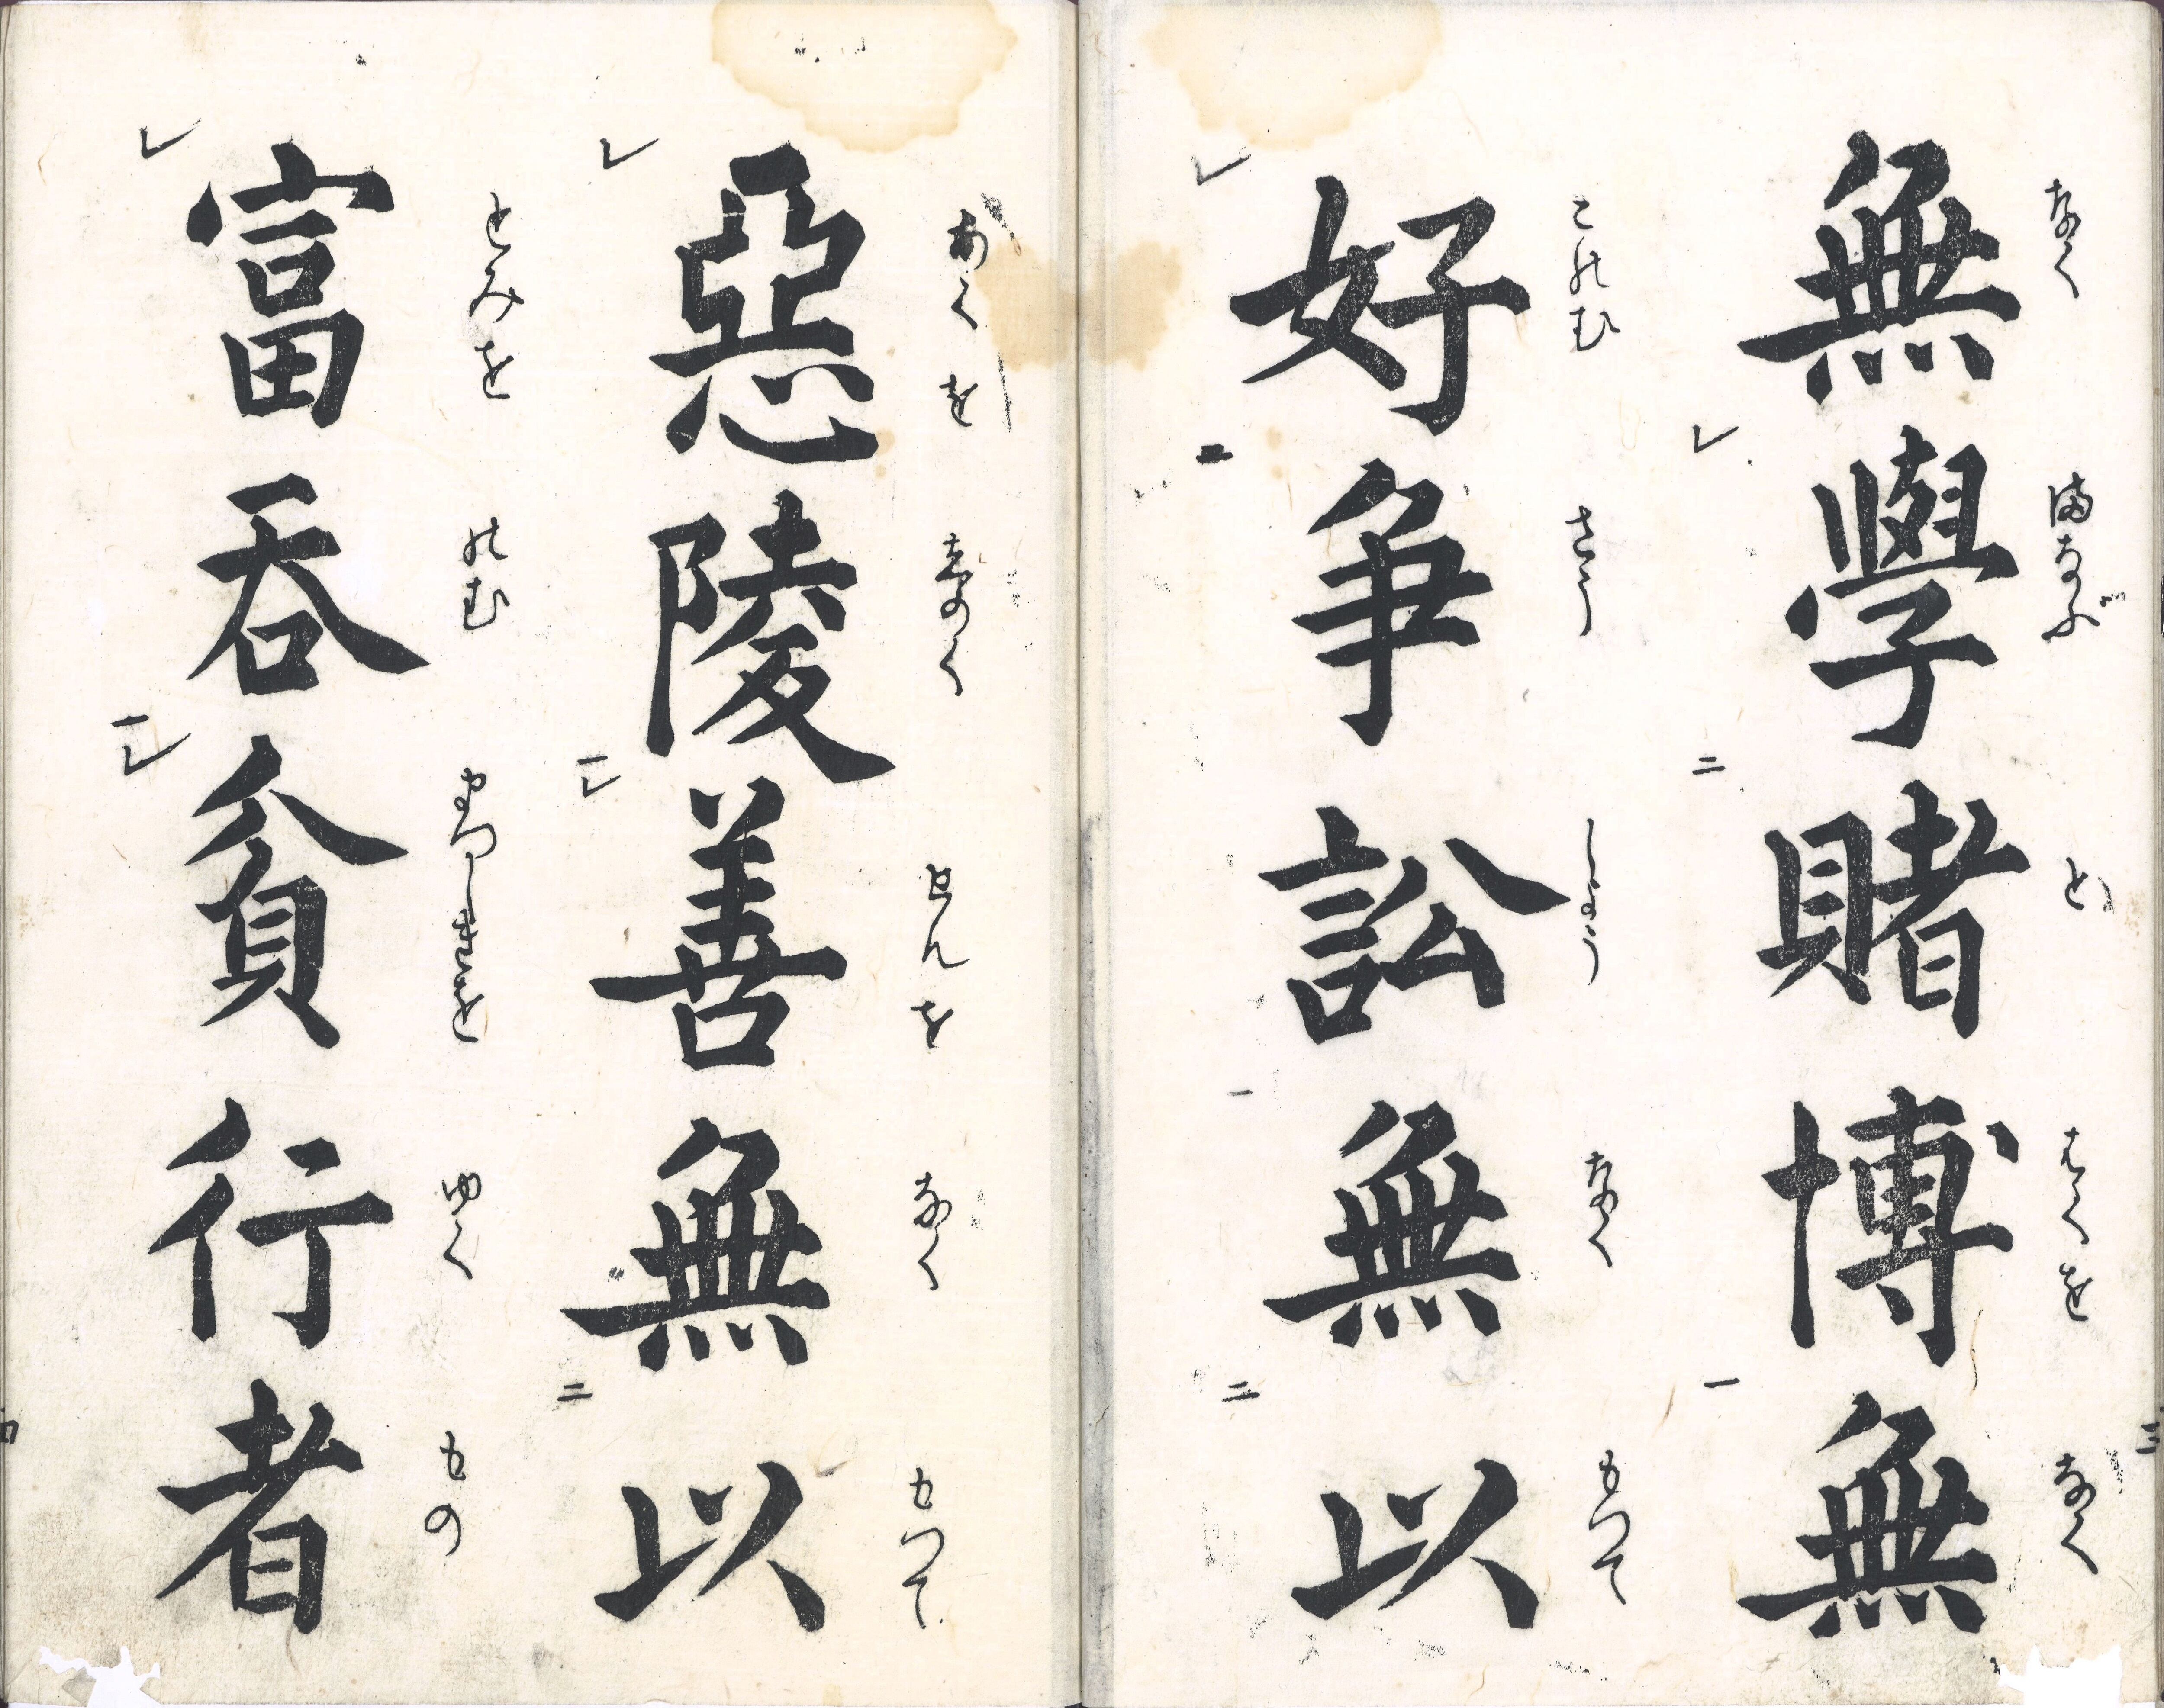 なく まなぶ と はくを なく
無學賭博無
三
このむ さう しよう なく もつて
好爭訟無以
あくを しのく ぜんを なく もつて
惡陵善無以
とみを のむ まつしきを ゆく もの
富吞貧行者